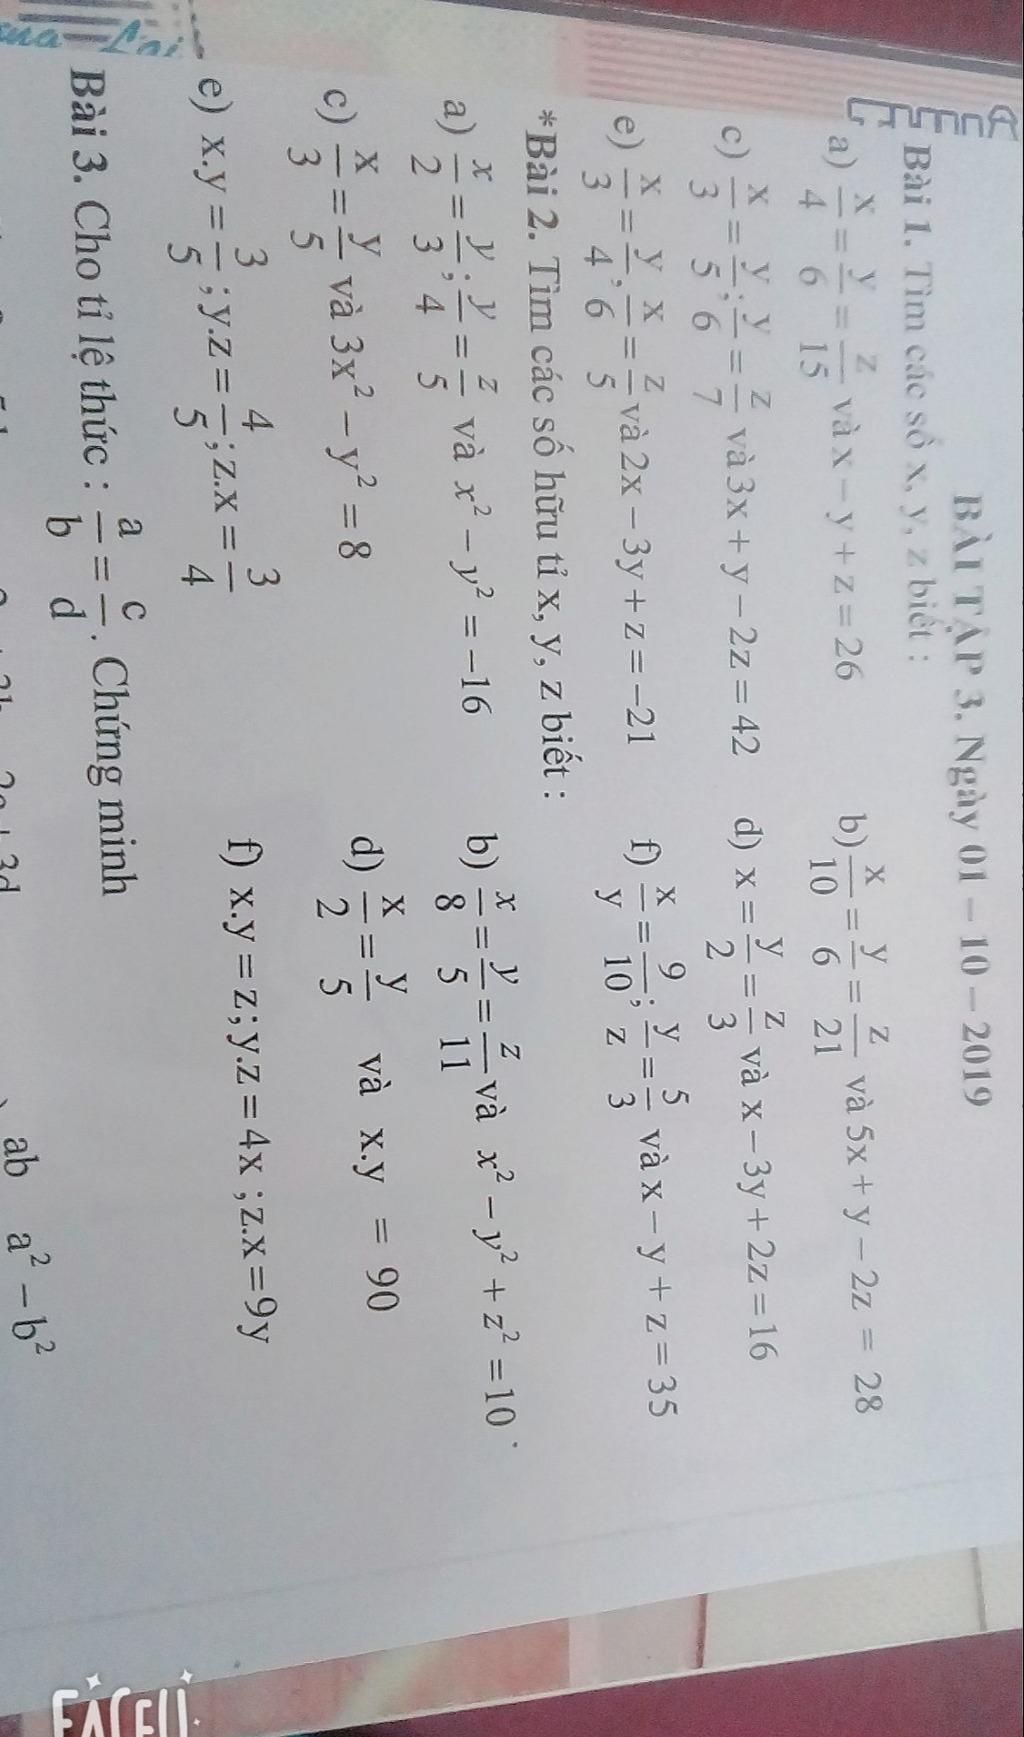 BÀI TẬP 3. Ngày 01 – 10 – 2019
Bài 1. Tìm các số x, y, z biết :
a) x/4 = y/6 = z/15 và x – y + z = 26
b) x/10 = y/6 = z/21 và 5x + y – 2z = 28
c) x/3 = y/5; y/6 = z/7 và 3x + y – 2z = 42
d) x = y/2 = z/3 và x – 3y + 2z = 16
e) x/3 = y/4, x/6 = z/5 và 2x – 3y + z = –21
f) x/y = 9/10; y/z = 5/3 và x – y + z = 35
*Bài 2. Tìm các số hữu tỉ x, y, z biết :
a) x/2 = y/3; y/4 = z/5 và x² – y² = –16
b) x/8 = y/5 = z/11 và x² – y² + z² = 10.
c) x/3 = y/5 và 3x² – y² = 8
d) x/2 = y/5 và x.y = 90
e) x.y = 3/5; y.z = 4/5; z.x = 3/4
f) x.y = z; y.z = 4x ; z.x = 9y
Bài 3. Cho tỉ lệ thức : a/b = c/d. Chứng minh
ab a² – b²